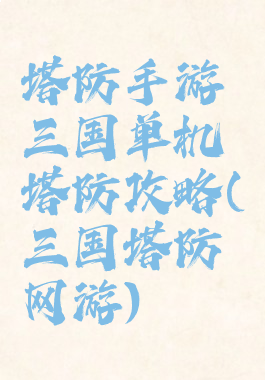 塔防手游
三国单机
塔防攻略(
三国塔防
网游)